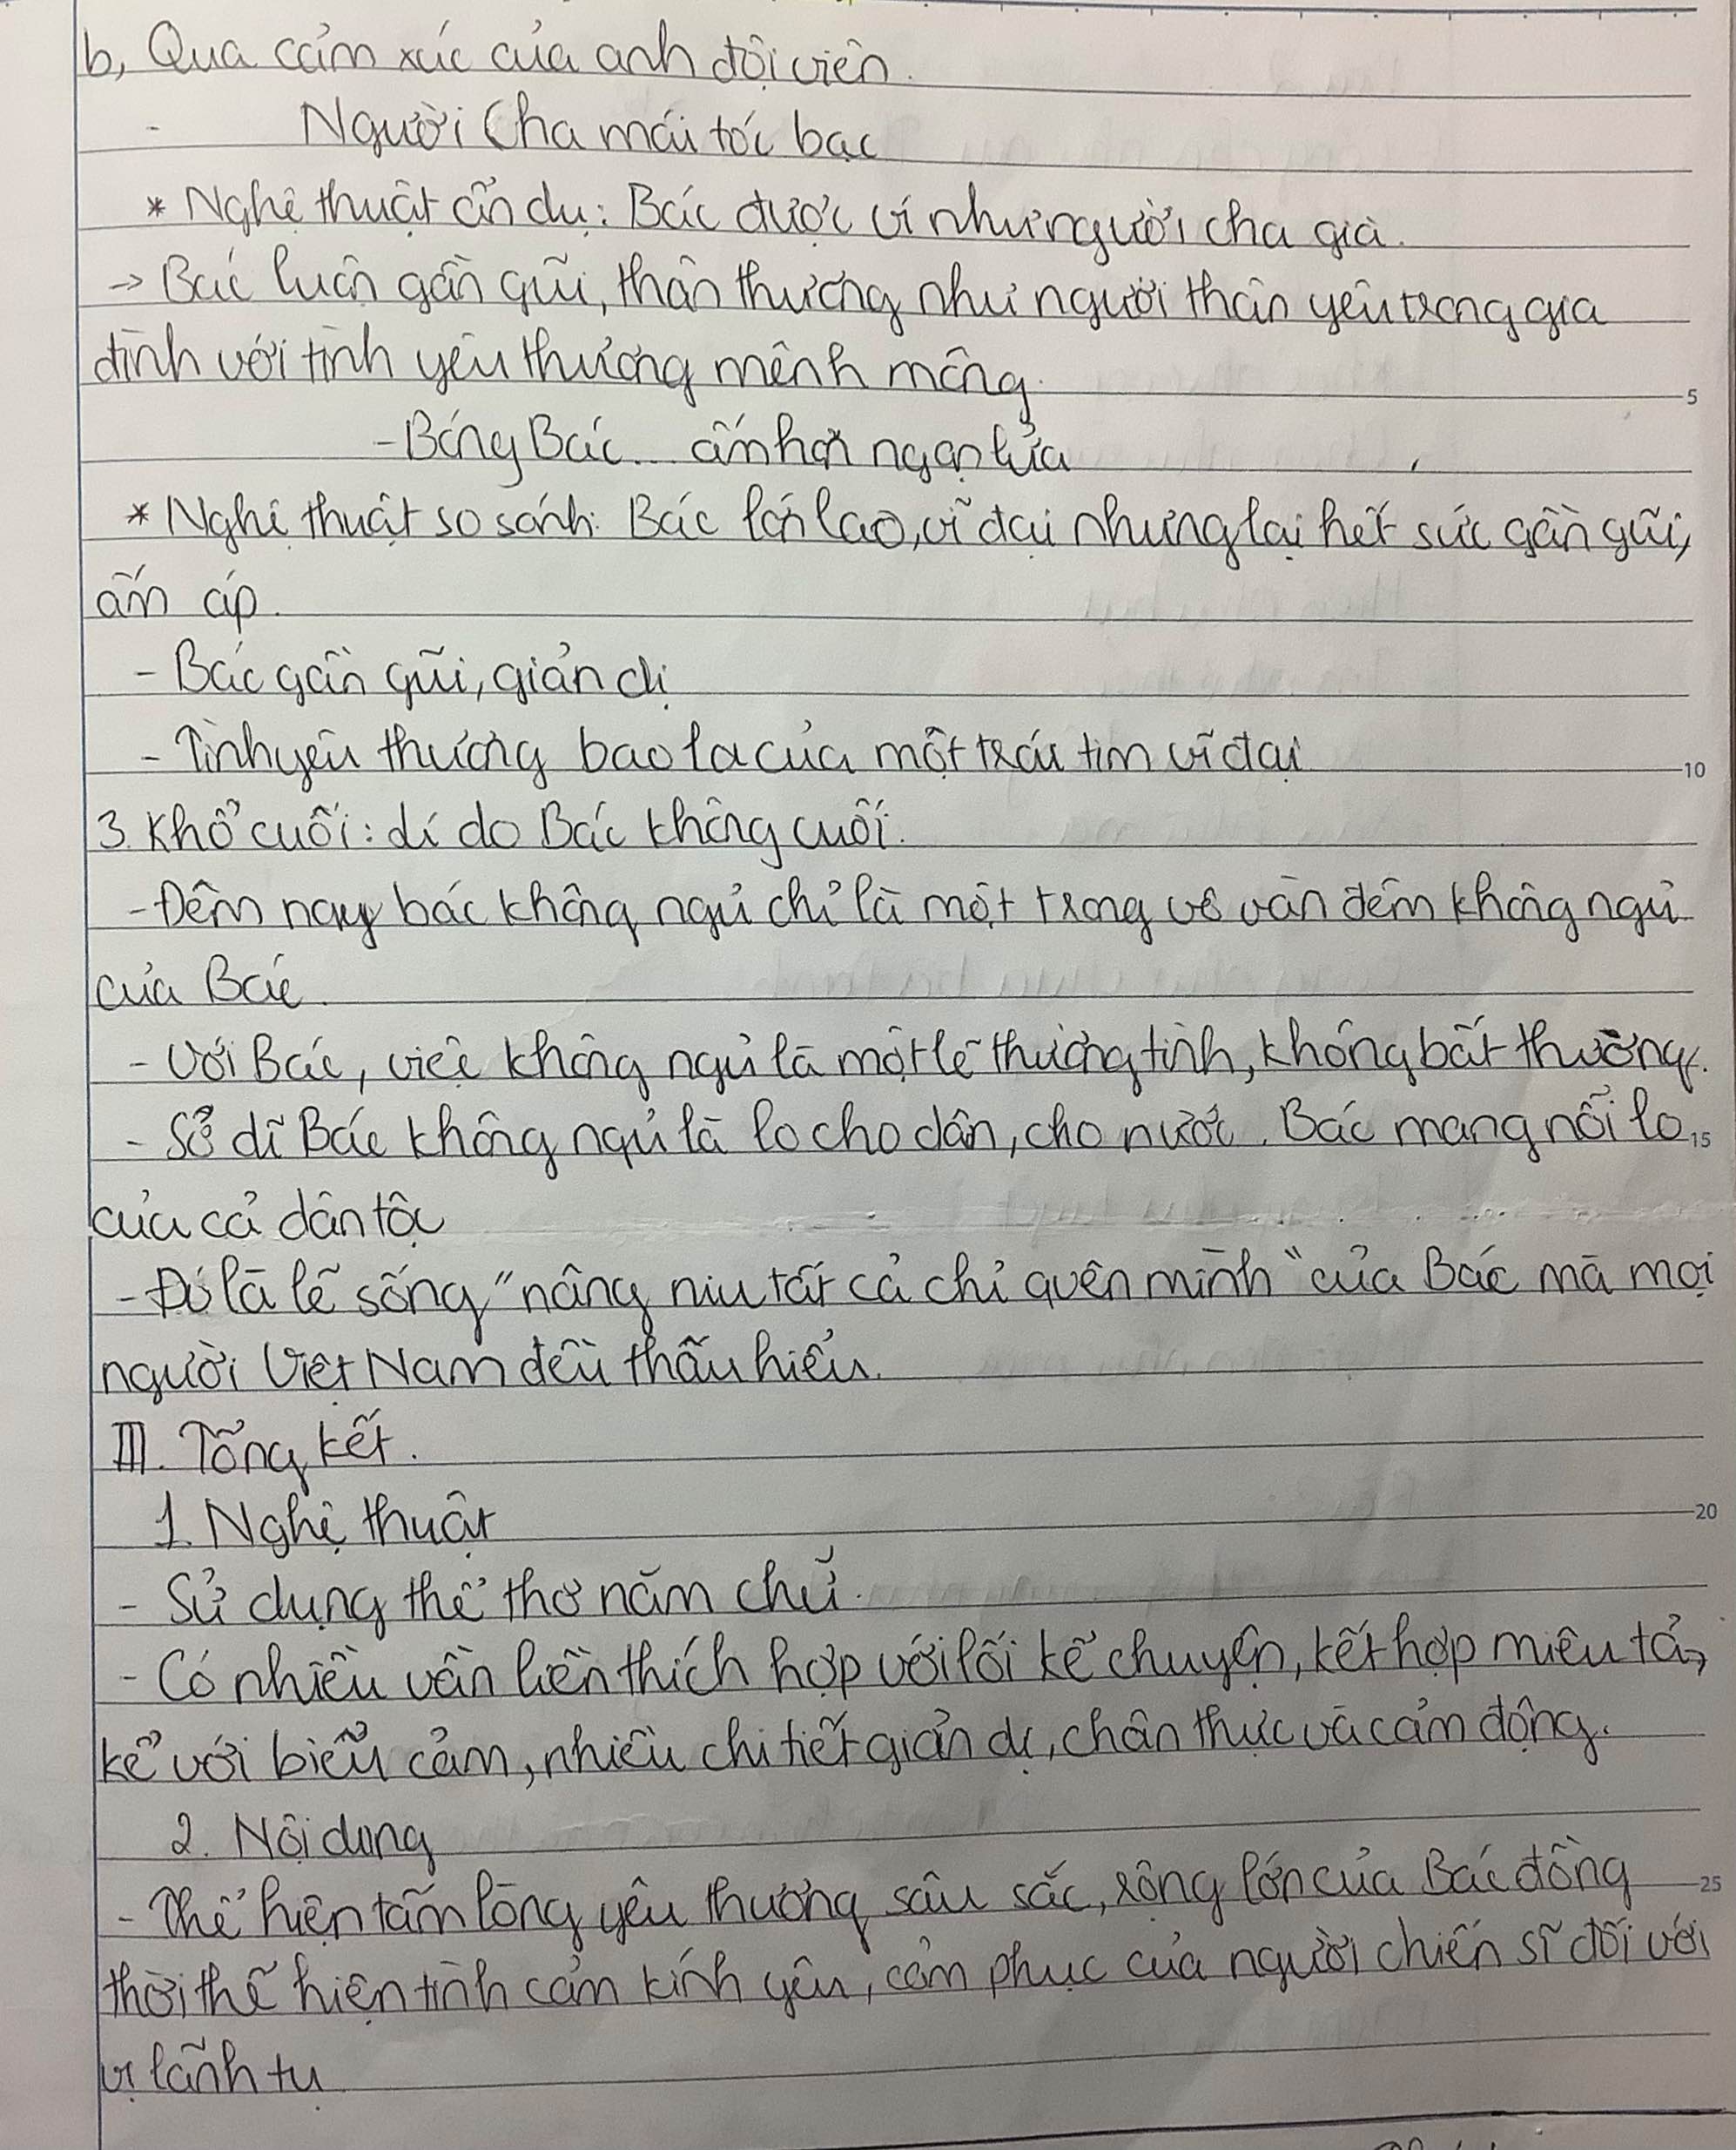 b, Qua cảm xúc của anh đội viên.
- Người Cha mái tóc bạc
* Nghệ thuật ẩn dụ: Bác được ví như người cha già.
→ Bác luôn gần gũi, thân thương như người thân yêu trong gia
đình với tình yêu thương mênh mông.
- Bóng Bác... ấm hơn ngọn lửa
* Nghệ thuật so sánh: Bác lớn lao, vĩ đại nhưng lại hết sức gần gũi,
ấm áp.
- Bác gần gũi, giản dị
- Tình yêu thương bao la của một trái tim vĩ đại
3. Khổ cuối: lí do Bác không cuối.
- Đêm nay bác không ngủ chỉ là một trong vô vàn đêm không ngủ
của Bác.
- Với Bác, việc không ngủ là một lẽ thường tình, không bất thường.
- Sở dĩ Bác không ngủ là lo cho dân, cho nước. Bác mang nỗi lo
của cả dân tộc
- Đó là lẽ sống "nâng niu tất cả chỉ quên mình" của Bác mà mọi
người Việt Nam đều thấu hiểu.
III. Tổng kết.
1. Nghệ thuật
- Sử dụng thể thơ năm chữ.
- Có nhiều vần liền thích hợp với lối kể chuyện, kết hợp miêu tả,
kể với biểu cảm, nhiều chi tiết giản dị, chân thực và cảm động.
2. Nội dung
- Thể hiện tấm lòng yêu thương sâu sắc, rộng lớn của Bác đồng
thời thể hiện tình cảm kính yêu, cảm phục của người chiến sĩ đối với
vị lãnh tụ